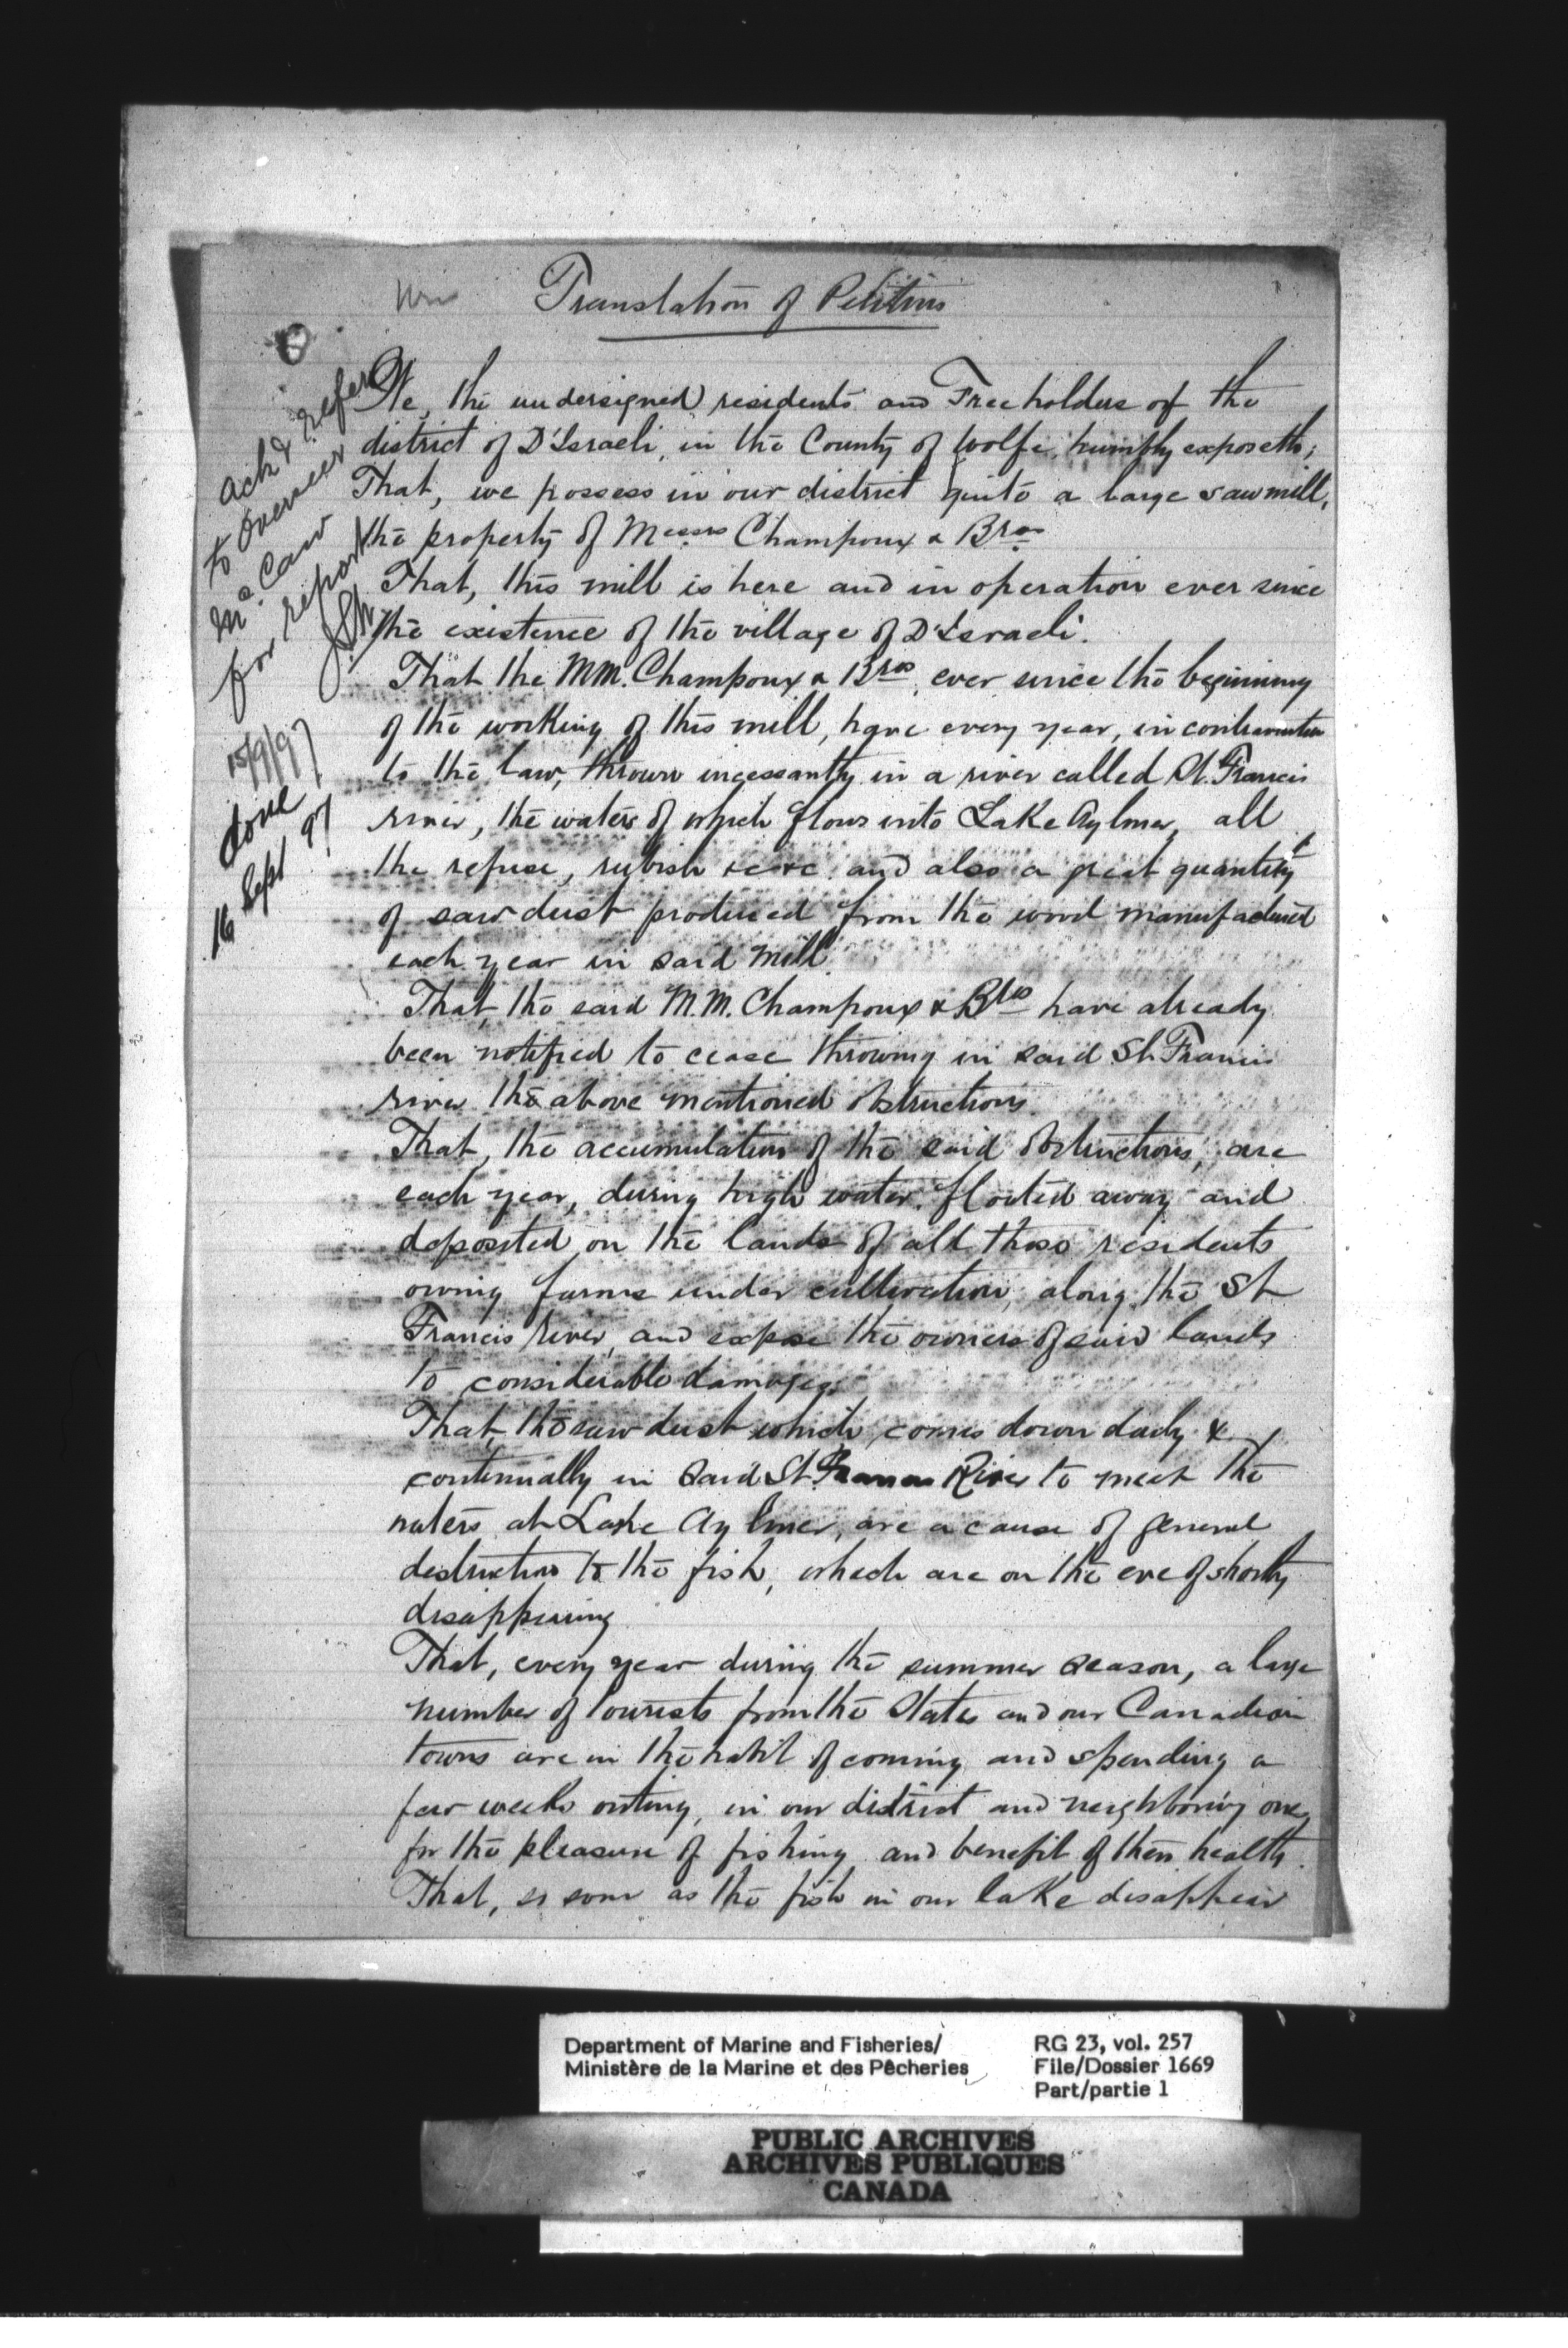 Translation of Petition
We, the undersigned residents and Freeholders of the
district of D'Israeli, in the County of Wolfe, humbly exposeth;
That, we possess in our district quite a large saw mill,
the property of Messrs Champoux & Bros
That, this mill is here and in operation ever since
the existence of the village of D'Israeli.
That the MM. Champoux & Bros, ever since the beginning
of the working of this mill, have every year, in contravention
to the law, thrown incessantly in a river called St. Francis
river, the waters of which flows into Lake Aylmer, all
the refuse, rubish &c &c and also a great quantity
of sawdust produced from the wood manufactured
each year in said Mill.
That, the said M.M. Champoux & Bros have already
been notified to cease throwing in said St. Francis
river the above mentioned obstructions.
That, the accumulation of the said obstructions, are
each year, during high water, floated away and
deposited on the lands of all those residents
owning farms under cultivation, along the St
Francis river, and expose the owners of said lands
to considerable damages.
That, the saw dust which comes down daily &
continually in said St. Francis River to meet the
waters at Lake Aylmer, are a cause of general
destruction to the fish, which are on the eve of shortly
disappearing
That, every year during the summer season, a large
number of tourists from the States and our Canadian
towns are in the habit of coming and spending a
few weeks outing, in our district and neighboring one,
for the pleasure of fishing and benefit of their health.
That, so soon as the fish in our lake disappear
Ackd & refer
to Overseer
McCaw
for report
15/9/97
done
16 Sept 97
Department of Marine and Fisheries/
Ministère de la Marine et des Pêcheries
RG 23, vol. 257
File/Dossier 1669
Part/partie 1
PUBLIC ARCHIVES
ARCHIVES PUBLIQUES
CANADA